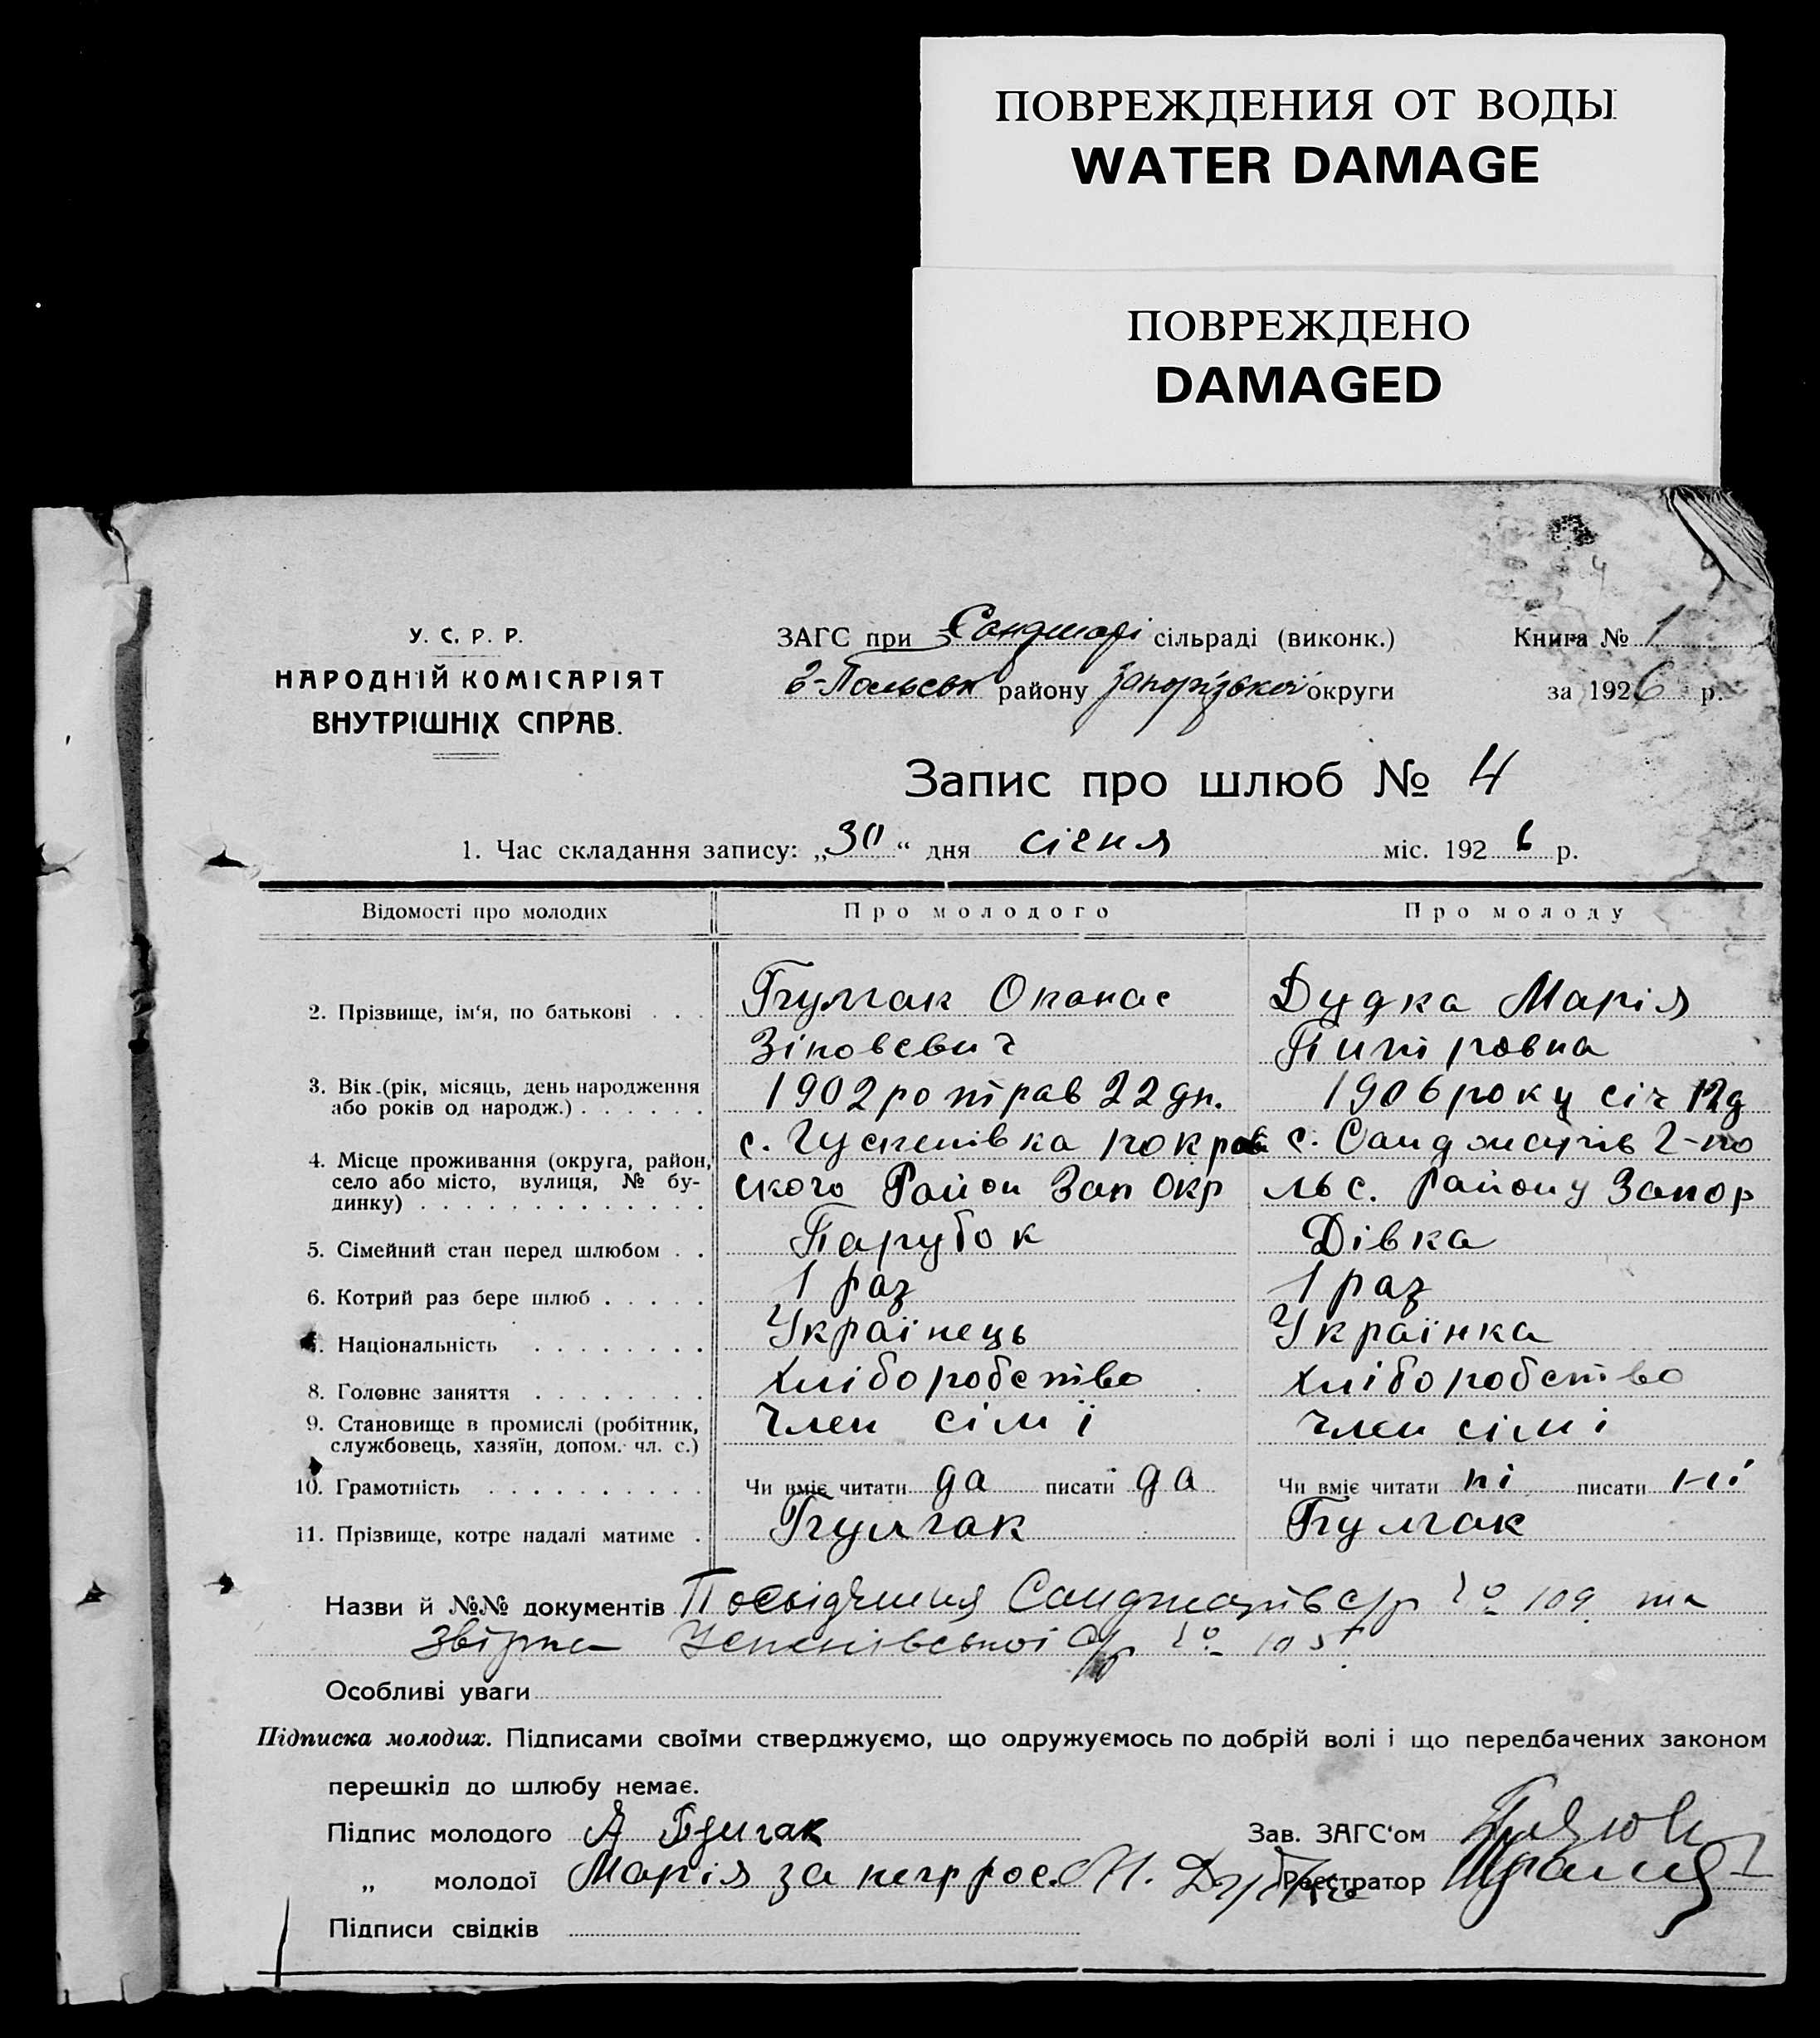 ПОВРЕЖДЕНИЯ ОТ ВОДЫ
WATER DAMAGE
ПОВРЕЖДЕНО
DAMAGED
У. С. Р. Р.
НАРОДНІЙ КОМІСАРІЯТ
ВНУТРІШНІХ СПРАВ.
ЗАГС при сільраді (виконк.)
району Запорізької округи
Книга № 1
за 1926 р.
Запис про шлюб № 4
1. Час складання запису: „30“ дня січня міс. 1926 р.
Відомості про молодих Про молодого Про молоду
2. Прізвище, ім'я, по батькові . . . Опанас Дудка Марія
Зіновєвич
3. Вік (рік, місяць, день народження або років од народж.) . . . . . . 1902 ро трав 22 дн. 1906 року січ 12 д
4. Місце проживання (округа, район, село або місто, вулиця, № будинку) . . . . . . . . . . . . . с. с.
ского Район Зап Окр льс. Району Запор
5. Сімейний стан перед шлюбом . . Парубок Дівка
6. Котрий раз бере шлюб . . . . . 1 раз 1 раз
7. Національність . . . . . . . . Українець Українка
8. Головне заняття . . . . . . . . Хліборобство Хліборобство
9. Становище в промислі (робітник, службовець, хазяїн, допом. чл. с.) Член сімї Член сімі
10. Грамотність . . . . . . . . . . Чи вміє читати да писати да Чи вміє читати ні писати ні
11. Прізвище, котре надалі матиме .
Назви й №№ документів 109 та
Успенівської с/р
Особливі уваги
Підписка молодих. Підписами своїми стверджуємо, що одружуємось по добрій волі і що передбачених законом
перешкід до шлюбу немає.
Підпис молодого А Зав. ЗАГС'ом
„ молодої Марія за Реєстратор
Підписи свідків